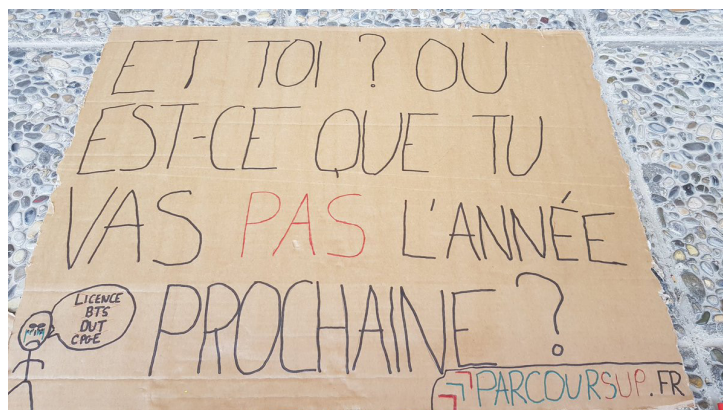 ET TOI ? OÙ
EST-CE QUE TU
VAS PAS L'ANNÉE
PROCHAINE ?
LICENCE
BTS
DUT
CPGE
PARCOURSUP.FR